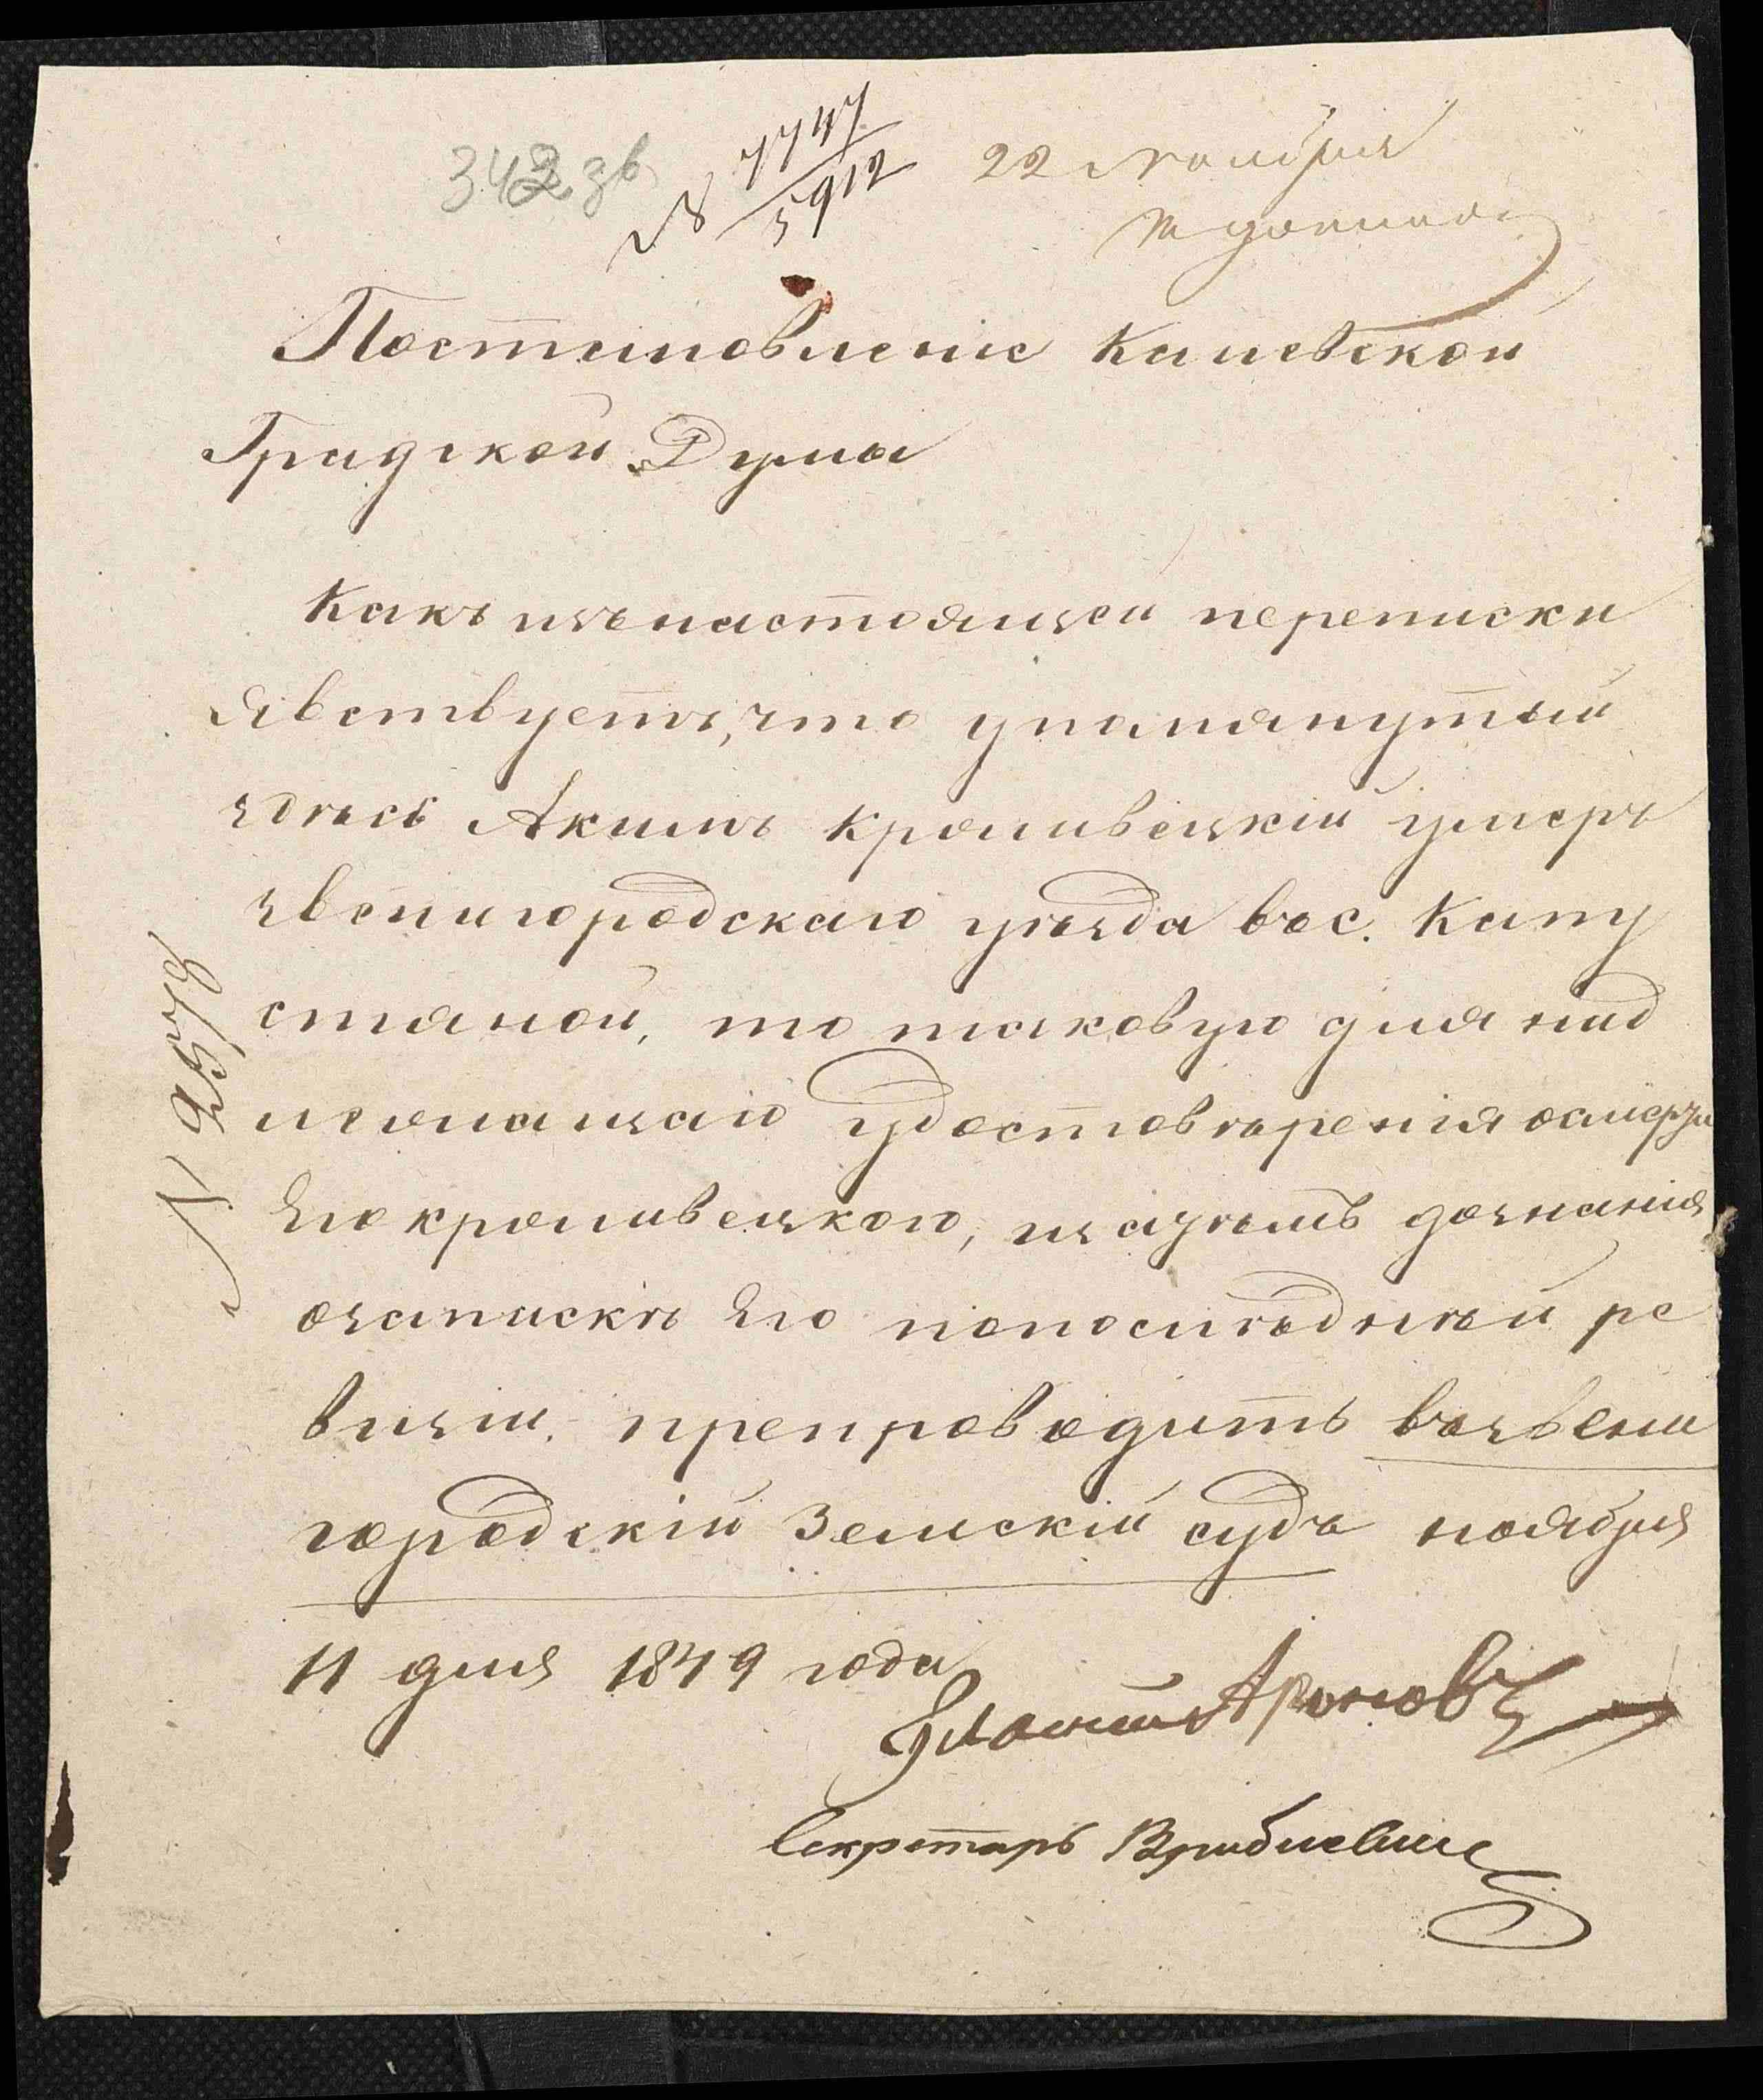 342 зв
№ 7747/5912
22 Ноября
Постановление Каневской
Градской Думы
Какъ изъ настоящей переписки
явствуетъ, что упомянутый
здѣсь Акимъ Кропивецкій умеръ
звенигородскаго уѣзда вос. Капу
стяной, то таковую для над
лежащаго удостовѣренія о смерти
Его кропивецкого, и затѣмъ дознания
о запискѣ Его по послѣдней ре
визіи, препроводить во звени
городскій Земскій судъ ноября
11 дня 1849 года
Секретарь
N 2578